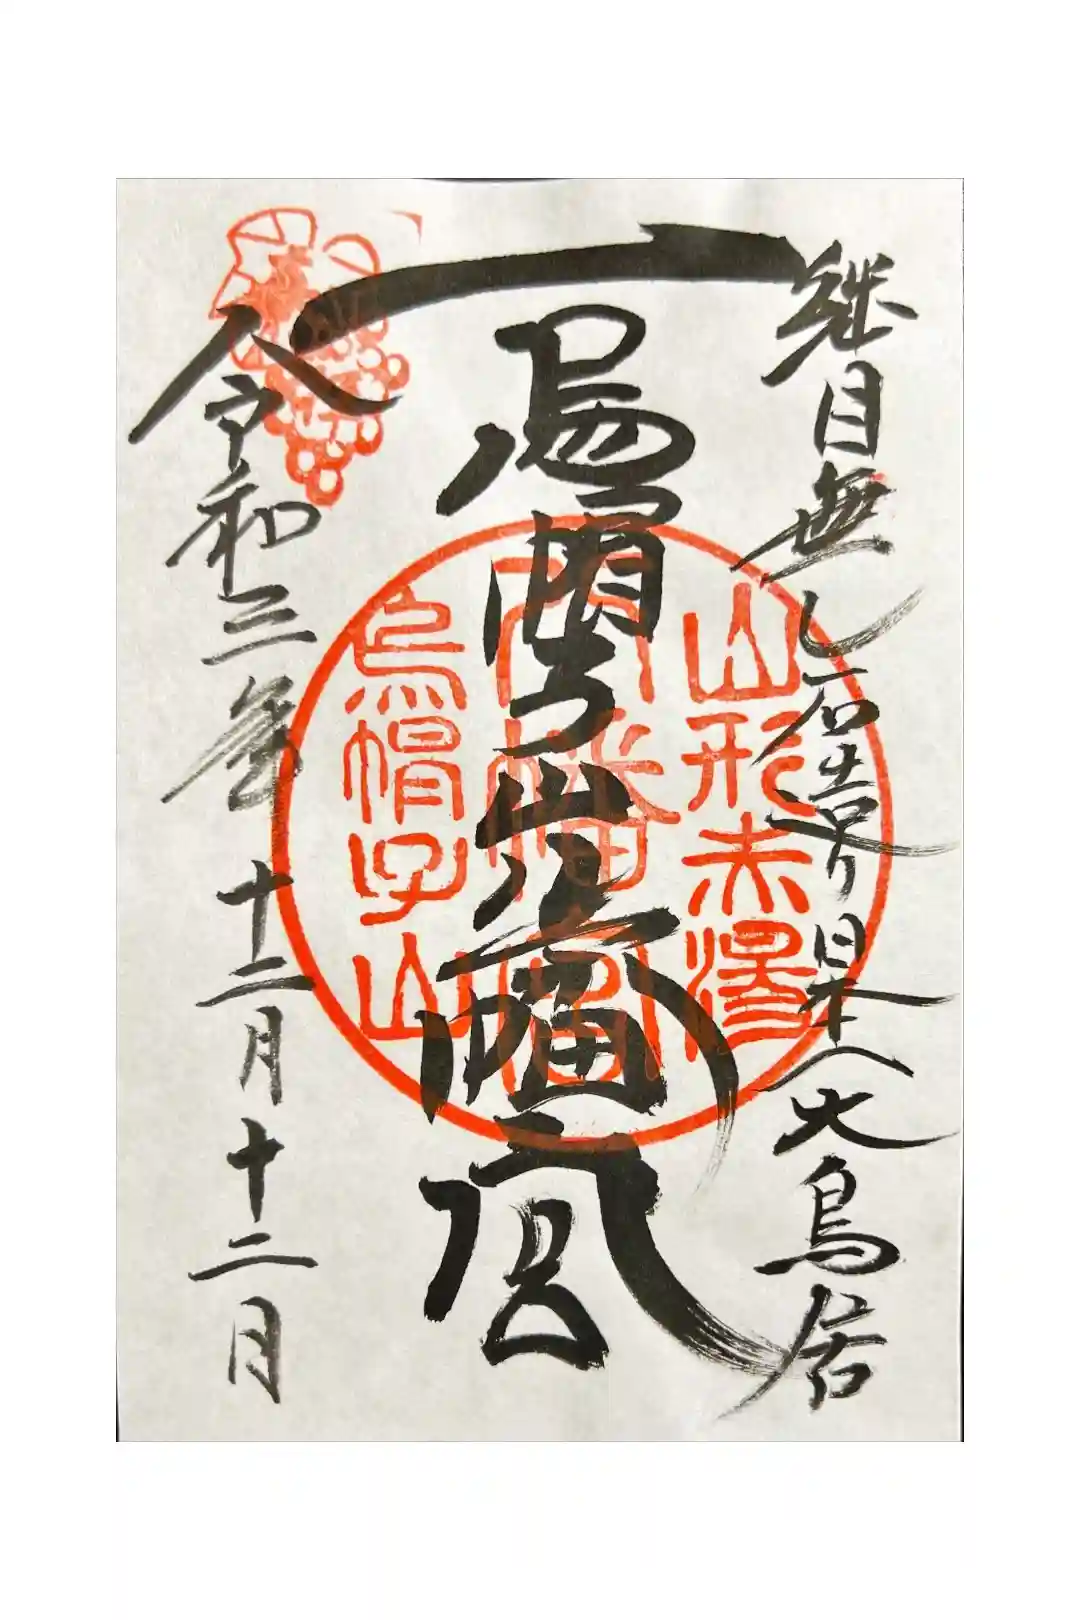 継目無し石造り日本一大鳥居
烏帽子山八幡宮
令和三年十二月十二日
山形赤湯
八幡宮
烏帽子山